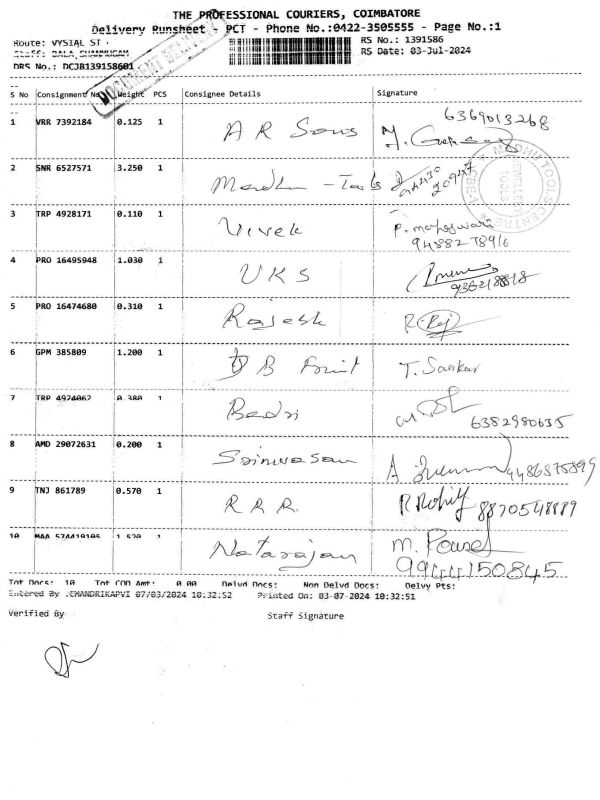 THE PROFESSIONAL COURIERS, COIMBATORE
Delivery Runsheet - PCT - Phone No.:0422-3505555 - Page No.:1
Route: VYSIAL ST . RS No.: 1391586
Staff: BALA,SHANMUGAM RS Date: 03-Jul-2024
DRS No.: DCJB139158601
DOCUMENT DELIVERY
S No Consignment No Weight PCS Consignee Details Signature
1 VRR 7392184 0.125 1 A R Sons 6369013268
2 SNR 6527571 3.250 1 Madhu - Tools 94430 20947
3 TRP 4928171 0.110 1 Vivek P. maheswari
94882 78916
4 PRO 16495948 1.030 1 UKS
9362188818
5 PRO 16474680 0.310 1 Rajesh R. Raj
6 GPM 385809 1.200 1 B Print T. Sankar
7 TRP 4924062 0.380 1 Badri 6382980635
8 AMD 29072631 0.200 1 Srinivasan A 9486875899
9 TNJ 861789 0.570 1 R R R. R Rohit 8870548889
10 MAA 574419105 1.520 1 Natarajan m.
9944150845
Tot Docs: 10 Tot COD Amt: 0.00 Delvd Docs: Non Delvd Docs: Delvy Pts:
Entered By :CHANDRIKAPVI 07/03/2024 10:32:52 Printed On: 03-07-2024 10:32:51
Verified By Staff Signature